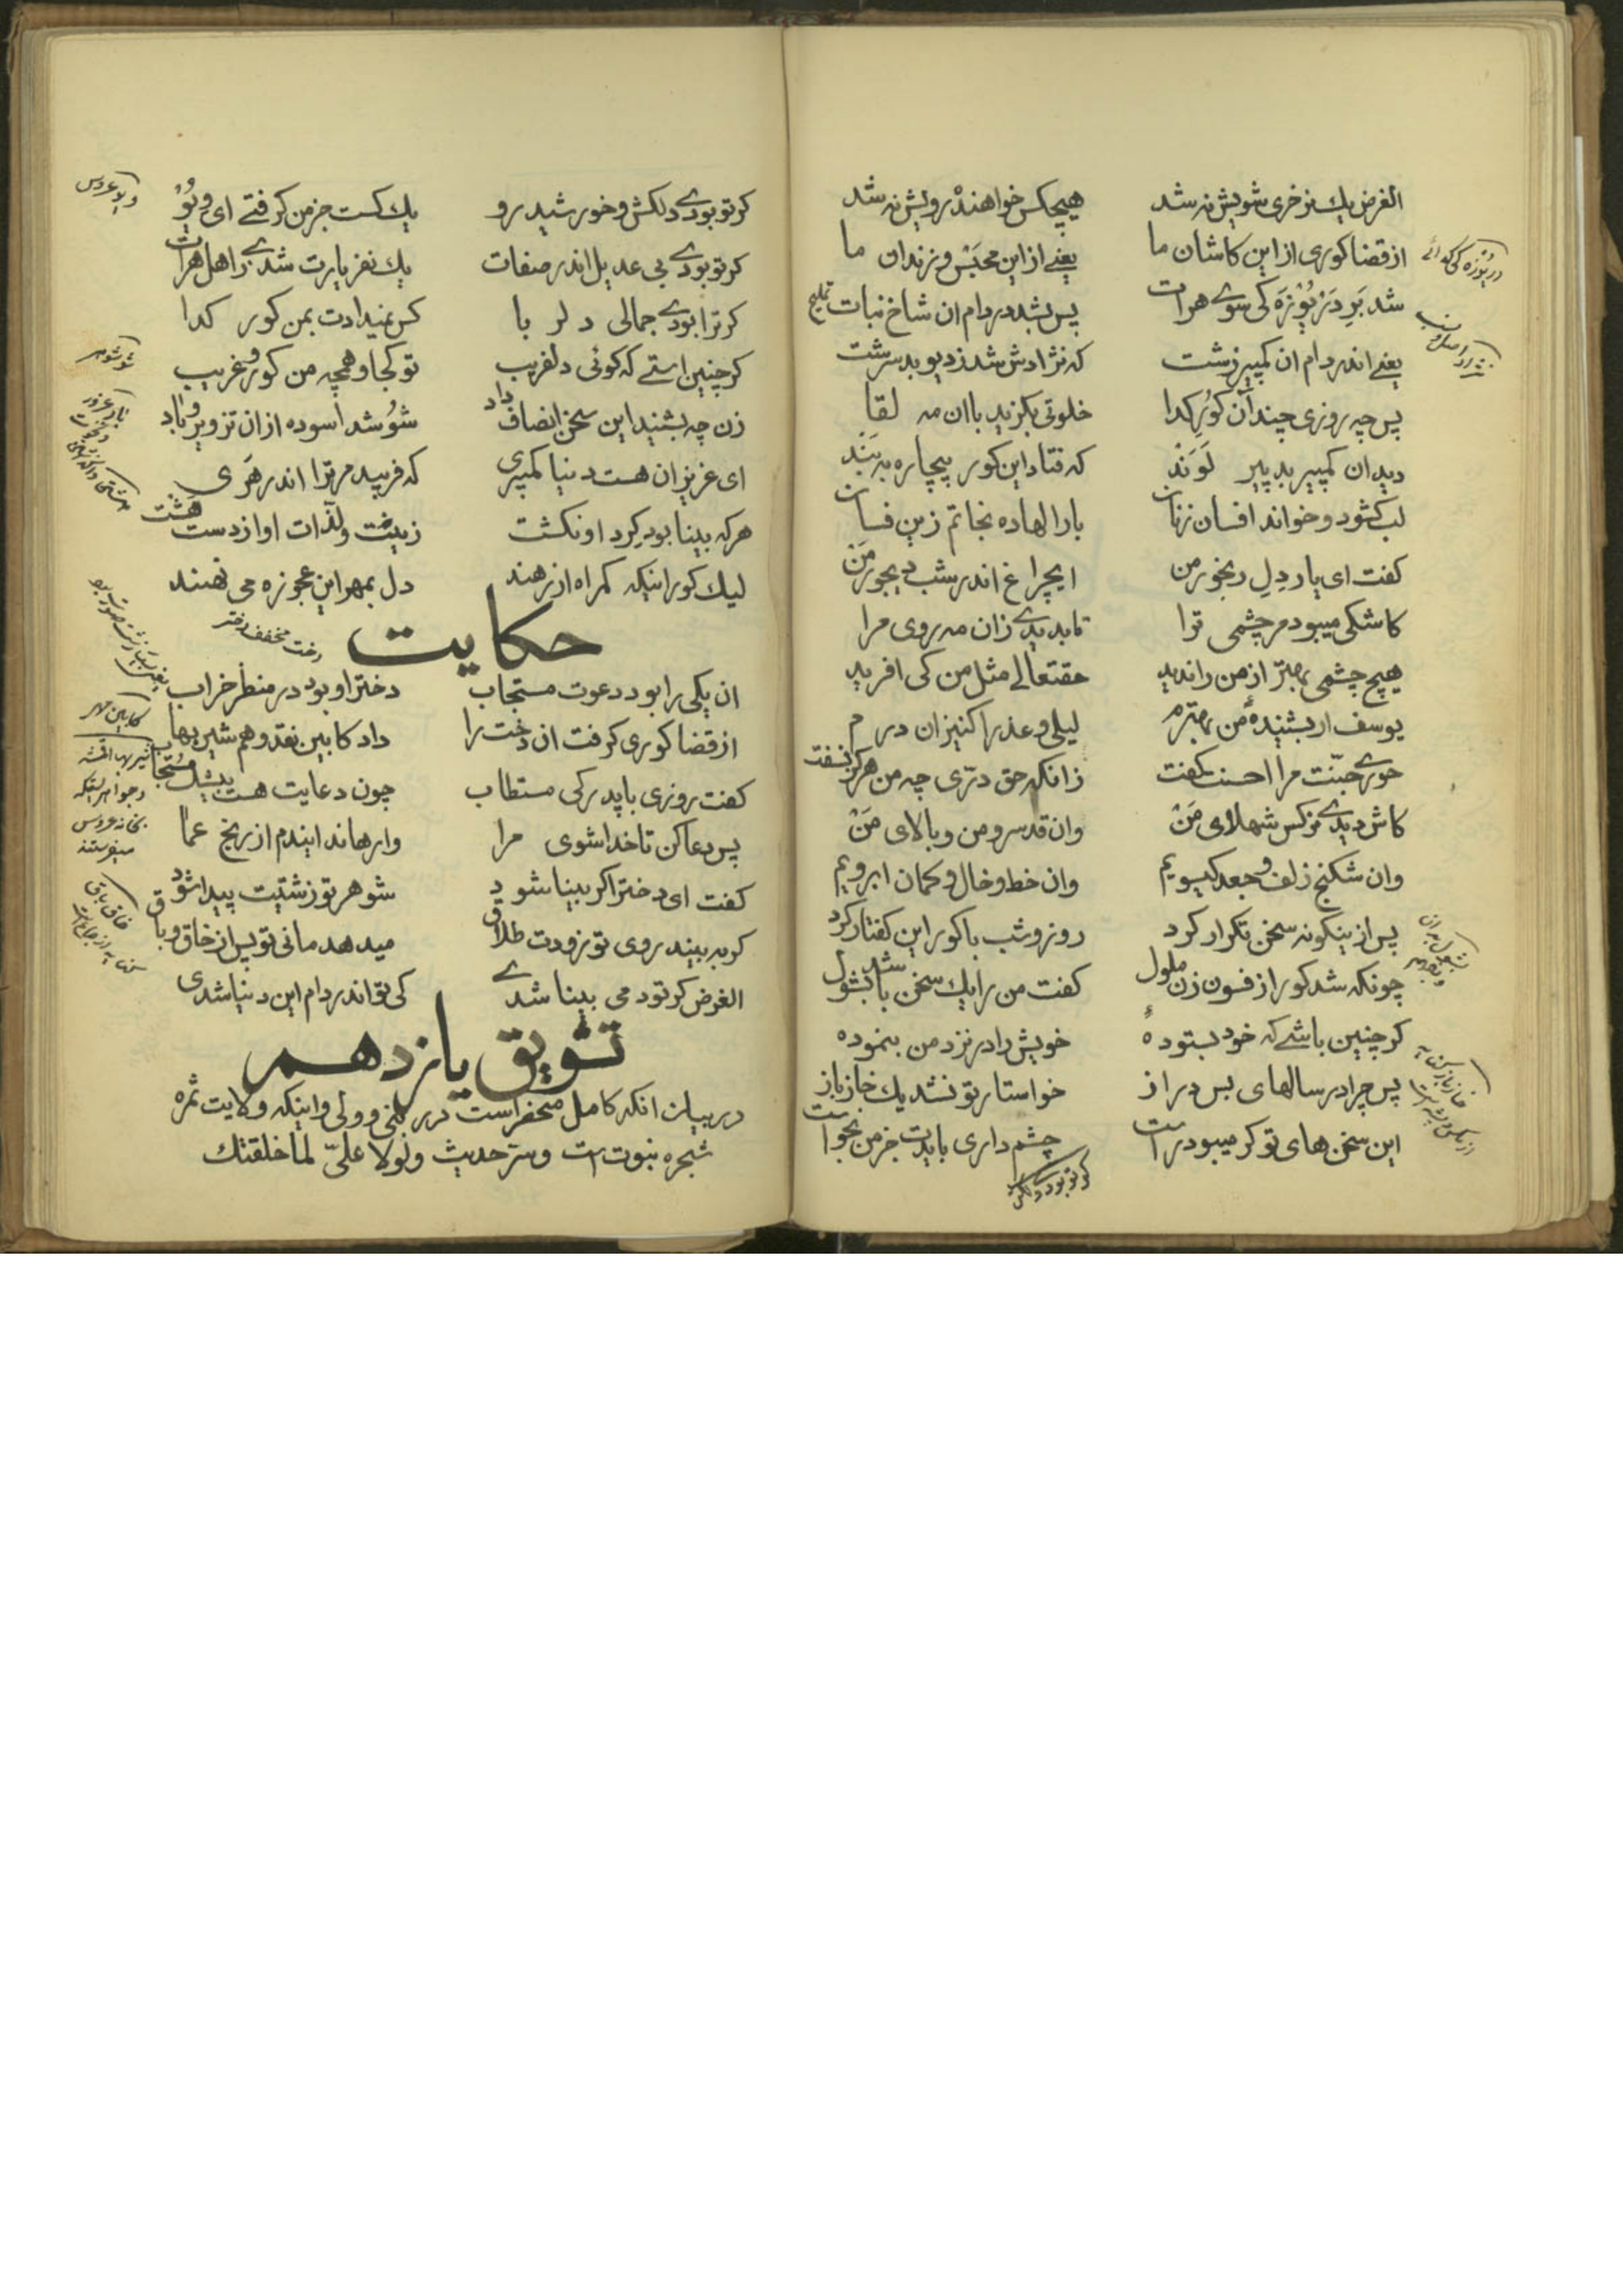 الغرض یك نر خری شویش نه شد هیچکس خواهند رویش نه شد
از قضا کوری از این کاشان ما یعنے از این محبس و زندان ما
شد برِ دَرْیُوْزَه کی سوے هرات پس بشد در دام ان شاخ نبات
یعنے اندر دام ان کمپیر زشت که نژادش شد ز دیو بد سرشت
پس چه روزی چند آن کورِ کدا خلوتی بکزید با ان مه لقا
دید ان کمپیر بد پیر لَوَنْد که فتاد این کور بیچاره به بَنْد
لب کشود و خواند افسان زنان بار الها ده نجاتم زین فسان
کفت ای یار دِلِ رنجور من ایچراغ اندر شب دیجور مَنْ
کاشکی میبود مر چشمی ترا تا بدیدے زان مه روی مرا
هیچ چشمی بهتر از من راندید حقتعالے مثل من کی افرید
یوسف ار بشنیدۀ من بهترم لیلی و عذرا کنیزان درم
حورے جنّت مرا احسنت کفت زانکه حق درّی چه من هرکز نسفت
کاش دیدے نرکس شهلای مَنْ وان قد سرو من و بالای مَنْ
وان شکنج زلف و جعد کیسویم وان خط و خال و کمان ابرویم
پس از ینکونه سخن تکرار کرد روز و شب با کور این کفتار کرد
چونکه شد کور از فسون زن ملول کفت من را یك سخن باشد بشول
کر چنین باشے که خود بستودۀ خویش را در نزد من بنموده
پس چرا در سالهای بس دراز خواستار تو نشد یك خاز باز
این سخن های تو کر میبود راست چشم داری بایدت جز من بخواست
کر تو بودے دلکش
دریوزه کی کدائے
کر تو بودے دلکش و خورشید رو یك کست جز من کرفتے ای ویُوْ
کر تو بودے بی عدیل اندر صفات یك نفر یارت شدے ز اهل هرات
کر ترا بودے جمالی دلربا کس نمیدادت بمن کور کدا
کر چنین استے که کوئی دلفریب تو کجا و همچه من کور و غریب
زن چه بشنید این سخن انصاف داد شُوْ شد اسوده از ان تزویر و باد
ای عزیزان هست دنیا کمپری که فریبد مر ترا اندر هَری
هرکه بینا بود کرد او نکشت زینت و لذات او از دست هَشت
لیك کور اینکه کمراه از رهند دل بمهر این عجوزه می نهند
حکایت
رخت مخفف دختر
ان یکی را بود دعوت مستجاب دختر او بود در منظر خراب
از قضا کوری کرفت ان دخت را داد کابین نقد و هم شیربها
کفت روزی با پدر کی مستطاب چون دعایت هست بیشك مُسْتجاب
پس دعا کن تا خدا شوی مرا وارهاند ایندم از رنج عما
کفت ای دختر اکر بینا شود شوهر تو زشتیت پیدا شود
کر به بیند روی تو زودت طلاق میدهد مانی تو پس از خاق و باق
الغرض کر تو دمی بینا شدے کی تو اندر دام این دنیا شدی
تشویق یازدهم
در بیان انکه کامل منحصر است در نبی و ولی و اینکه ولایت ثمره
شجره نبوت است و سرّ حدیث ولولا علیّ لما خلقتك
ویو عروس
شو شوهر
کابین مهر
شیربها اقمشه
و جواهر اینکه
بخانه عروس
میفرستند